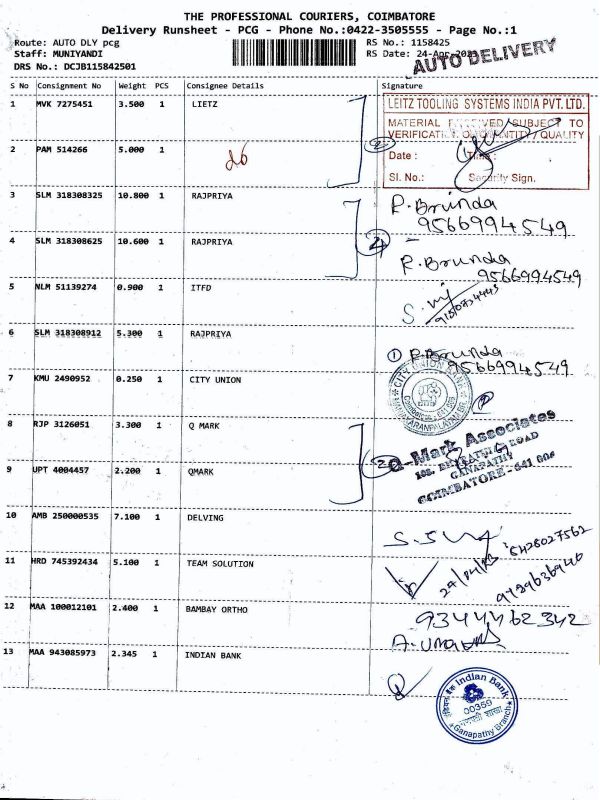 THE PROFESSIONAL COURIERS, COIMBATORE
Delivery Runsheet - PCG - Phone No.:0422-3505555 - Page No.:1
Route: AUTO DLY pcg
Staff: MUNIYANDI
DRS No.: DCJB115842501
RS No.: 1158425
RS Date: 24-Apr-2023
AUTO DELIVERY
S No Consignment No Weight PCS Consignee Details Signature
1 MVK 7275451 3.500 1 LIETZ
LEITZ TOOLING SYSTEMS INDIA PVT. LTD.
MATERIAL RECEIVED SUBJECT TO
VERIFICATION QUANTITY / QUALITY
Date : Time :
Sl. No.: Security Sign.
2 PAM 514266 5.000 1
3 SLM 318308325 10.800 1 RAJPRIYA
R. Brinda
9566994549
4 SLM 318308625 10.600 1 RAJPRIYA
R. Brunda
9566994549
5 NLM 51139274 0.900 1 ITFD
6 SLM 318308912 5.300 1 RAJPRIYA
1 R. Brunda
9566994549
7 KMU 2490952 0.250 1 CITY UNION
CITY UNION BANK
8 RJP 3126051 3.300 1 Q MARK
Q-Mark Associates
ROAD
GANAPATHY
COIMBATORE - 641 006
9 UPT 4004457 2.200 1 QMARK
10 AMB 250000535 7.100 1 DELVING
11 HRD 745392434 5.100 1 TEAM SOLUTION
24/04/23
12 MAA 100012101 2.400 1 BAMBAY ORTHO
9344462342
13 MAA 943085973 2.345 1 INDIAN BANK
Indian Bank
00359
Ganapathy Branch